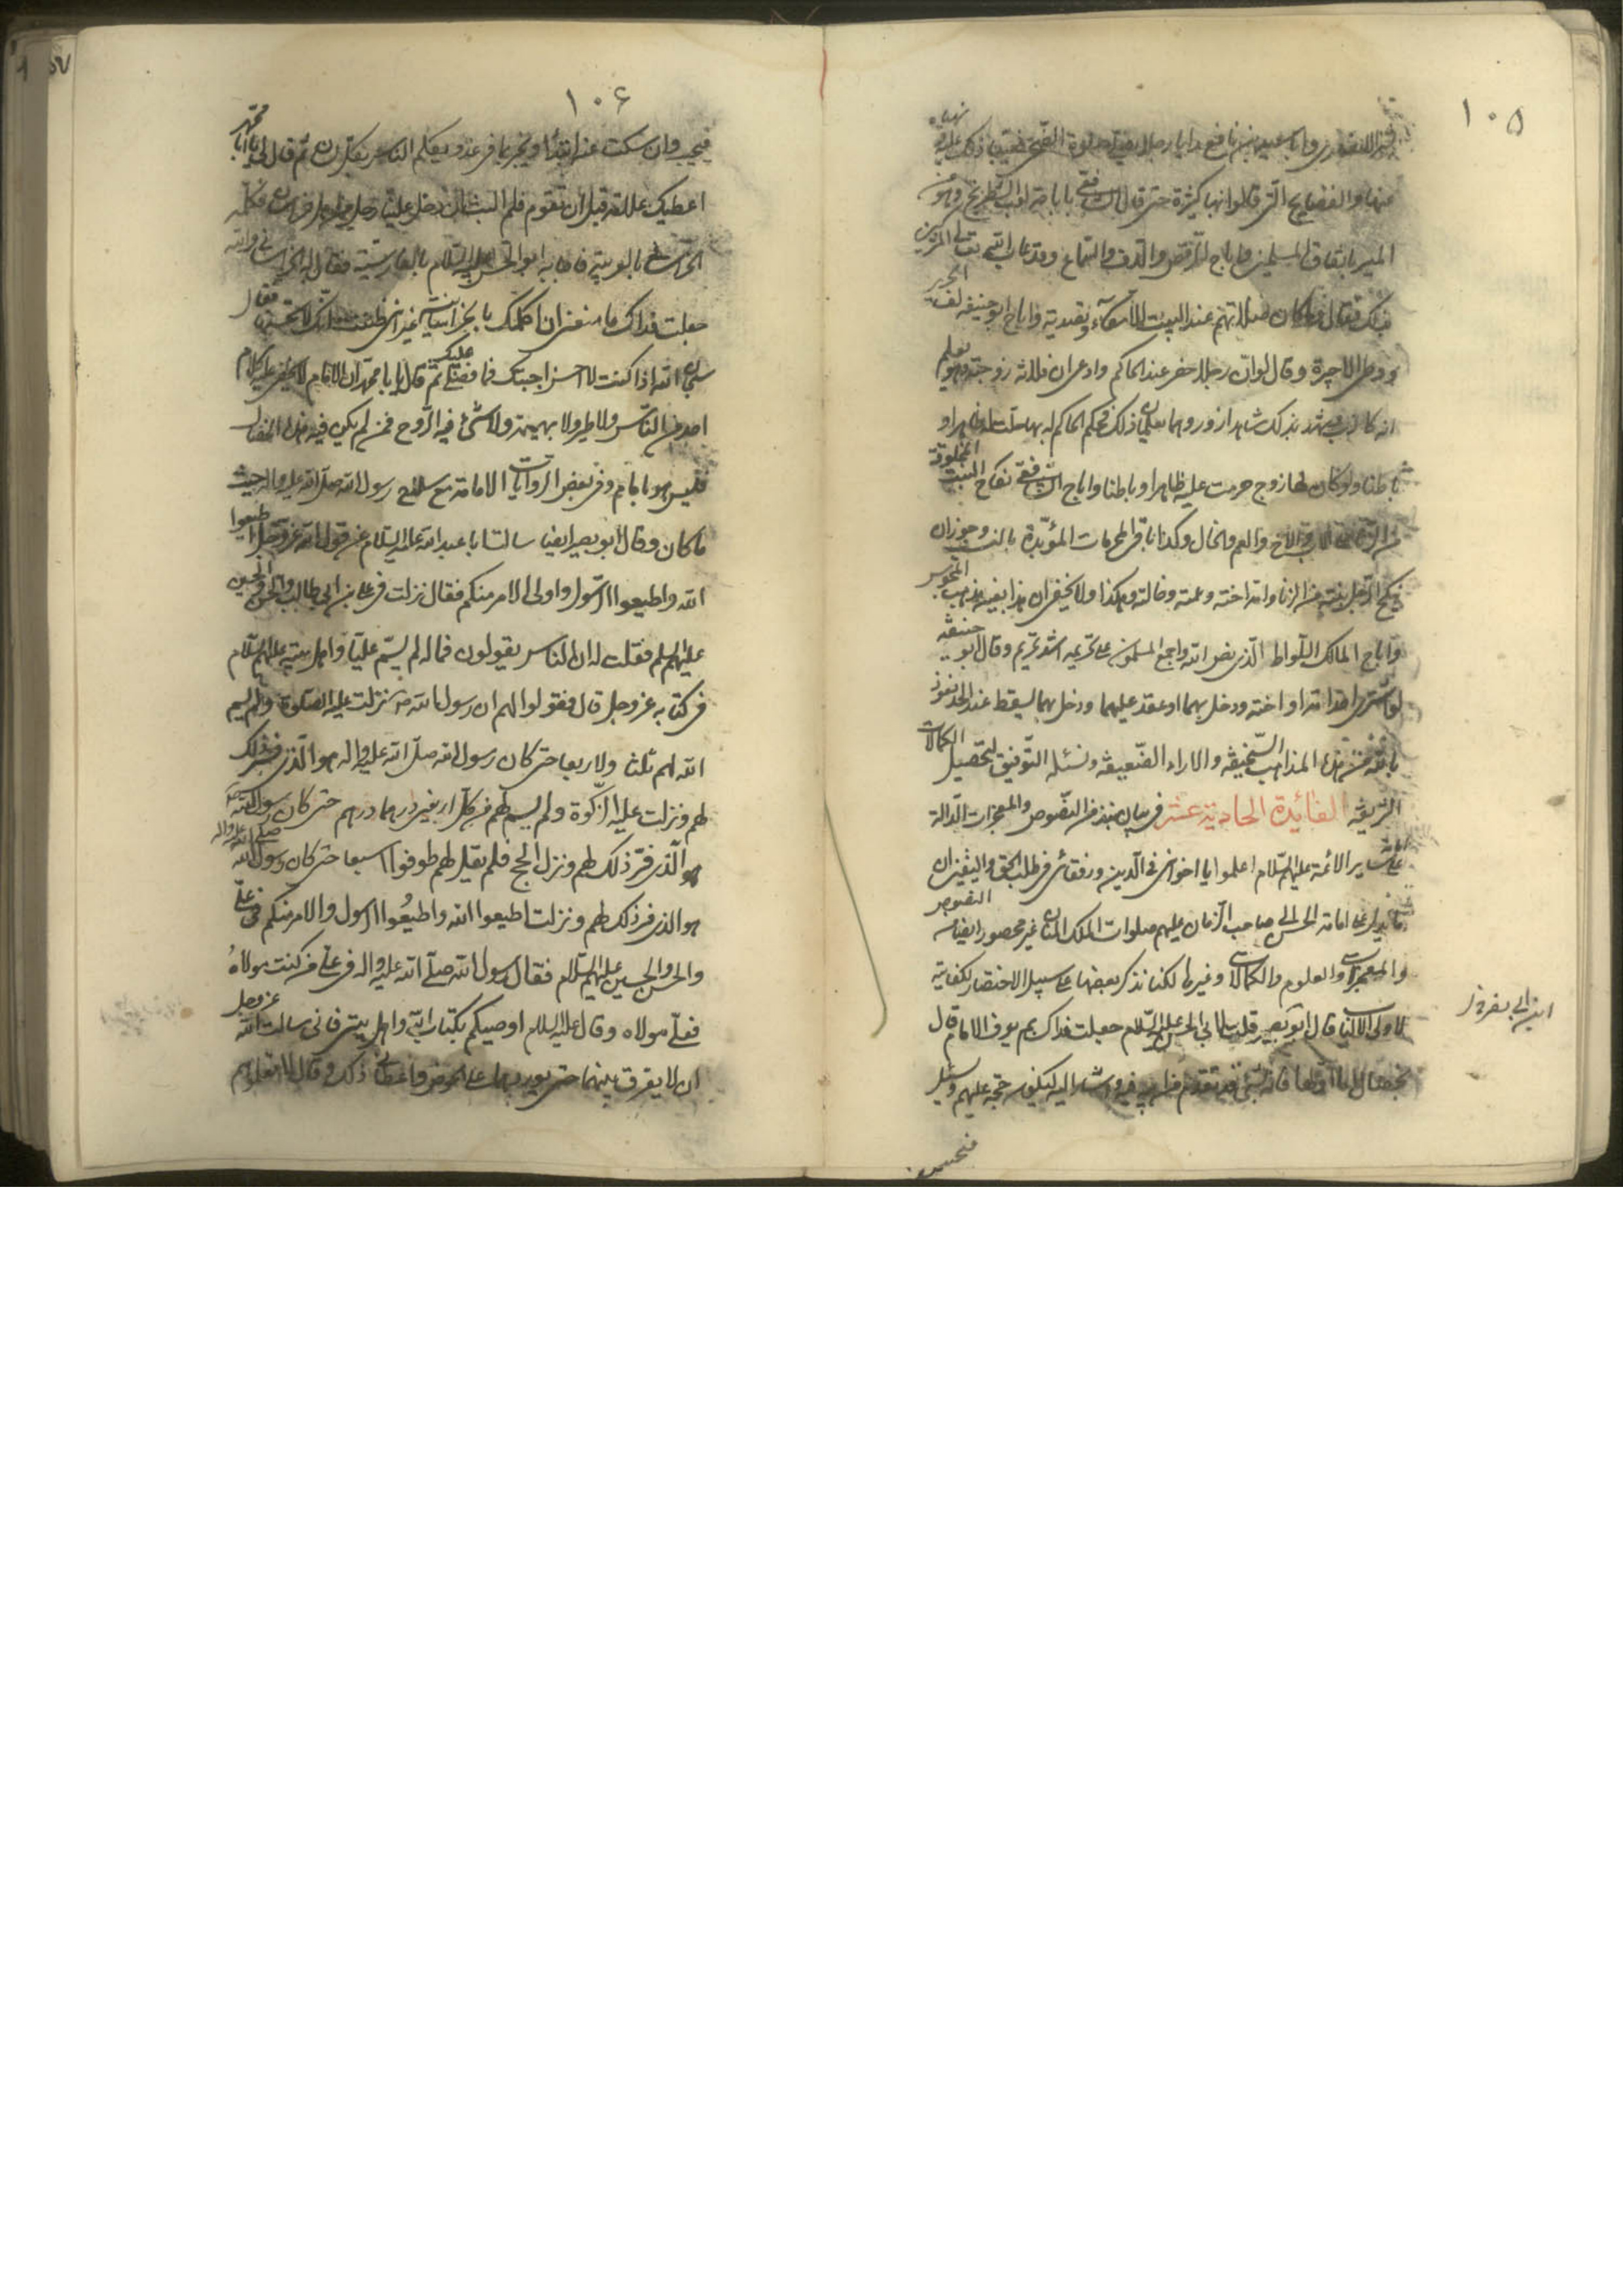 ١٠٥
عنها والفضايح التى قالوا بها كثيرة حتى قال الشافعى باباحة لعب الشطرنج وهو من
الميسر باتفاق المسلمين واباح الرقص والدف والسماع وقد عاب الله تعالى الذين
بذلك فقال وما كان صلاتهم عند البيت الا مكاء وتصدية واباح ابو حنيفه لف الحرير
ووطى الاجيرة وقال لو ان رجلا حضر عند الحاكم وادعى ان فلانة زوجته وهو يعلم
انه كاذب وشهد بذلك شاهدا زور وهما يعلمان ذلك وحكم الحاكم له بها حلت له ظاهرا و
باطنا ولو كان لها زوج حرمت عليه ظاهرا وباطنا واباح الشافعى نكاح البنت المخلوقة
من الزنا والاخ والعم والخال وكذا باقى المحرمات المؤبدة بالنسب وجوز ان
ينكح الرجل بنته من الزنا وامه اخته وعمته وخالته وهكذا ولا يخفى ان هذا بعينه مذهب المجوس
واباح المالك اللواط الذى نص الله واجمع المسلمون على تحريمه اشد تحريم وقال ابو حنيفه
لو اشترى احد امه او اخته ودخل بهما او عقد عليهما ودخل بهما يسقط عنه الحد نعوذ
بالله من هذه المذاهب السخيفه والاراء الضعيفه ونسئله التوفيق لتحصيل الكمالات
الشريفه الفائدة الحادية عشر فى بيان نبذ من النصوص والمعجزات الدالة
على ساير الائمة عليهم السلام اعلموا يا اخوانى فى الدين ورفقائى فى طلب الحق واليقين ان
ما يدل على امامة الحسن الى صاحب الزمان عليهم صلوات الملك المنان غير محصور ايضا من النصوص
والمعجزات والعلوم والكمالات وغيرها لكنا نذكر بعضها على سبيل الاختصار لكفايته
لاولى الالباب قال ابو بصير قلت لابى الحسن عليه السلام جعلت فداك بم يعرف الامام قال
بخصال اما اولها فانه بشئ قد تقدم من ابيه فيه واشارة اليه ليكون حجة عليهم ويسئل
فيجيب
١٠٦
فيجيب وان سكت عنه ابتدأ ويخبر بما فى غد ويكلم الناس بكل لسان ثم قال لى يا ابا محمد
اعطيك علامة قبل ان تقوم فلم البث ان دخل علينا رجل من اهل خراسان فكلمه
الخراسانى بالعربية فاجابه ابو الحسن عليه السلام بالفارسية فقال له الخراسانى والله
جعلت فداك ما منعنى ان اكلمك بالخراسانية غير انى ظننت انك لا تحسنها فقال
سبحان الله اذا كنت لا احسن اجيبك فما فضلى عليك ثم قال يا ابا محمد ان الامام لا يخفى عليه كلام
احد من الناس ولا طير ولا بهيمة ولا شئ فيه الروح فمن لم يكن فيه هذه الخصال
فليس هو بامام وفى بعض الروايات الامامة مع سلاح رسول الله صلى الله عليه واله حيث
ما كان وقال ابو بصير ايضا سالت ابا عبد الله عليه السلام عن قول الله عز وجل اطيعوا
الله واطيعوا الرسول واولى الامر منكم فقال نزلت فى على بن ابى طالب والحسن والحسين
عليهم السلم فقلت له ان الناس يقولون فما له لم يسم عليا واهل بيته عليهم السلام
فى كتابه عز وجل قال فقولوا لهم ان رسول الله ص نزلت عليه الصلوة ولم يسم
الله لهم ثلثا ولا اربعا حتى كان رسول الله صلى الله عليه واله هو الذى فسر ذلك
لهم ونزلت عليه الزكوة ولم يسم لهم من كل اربعين درهما درهم حتى كان رسول الله صلى الله عليه واله
هو الذى فسر ذلك لهم ونزل الحج فلم يقل لهم طوفوا اسبوعا حتى كان رسول الله
هو الذى فسر ذلك لهم ونزلت اطيعوا الله واطيعوا الرسول واولى الامر منكم فى على
والحسن والحسين عليهم السلام فقال رسول الله صلى الله عليه واله فى على من كنت مولاه
فعلى مولاه وقال عليه السلام اوصيكم بكتاب الله واهل بيتى فانى سالت الله عز وجل
ان لا يفرق بينهما حتى يوردهما على الحوض فاعطانى ذلك وقال لا تعلموهم